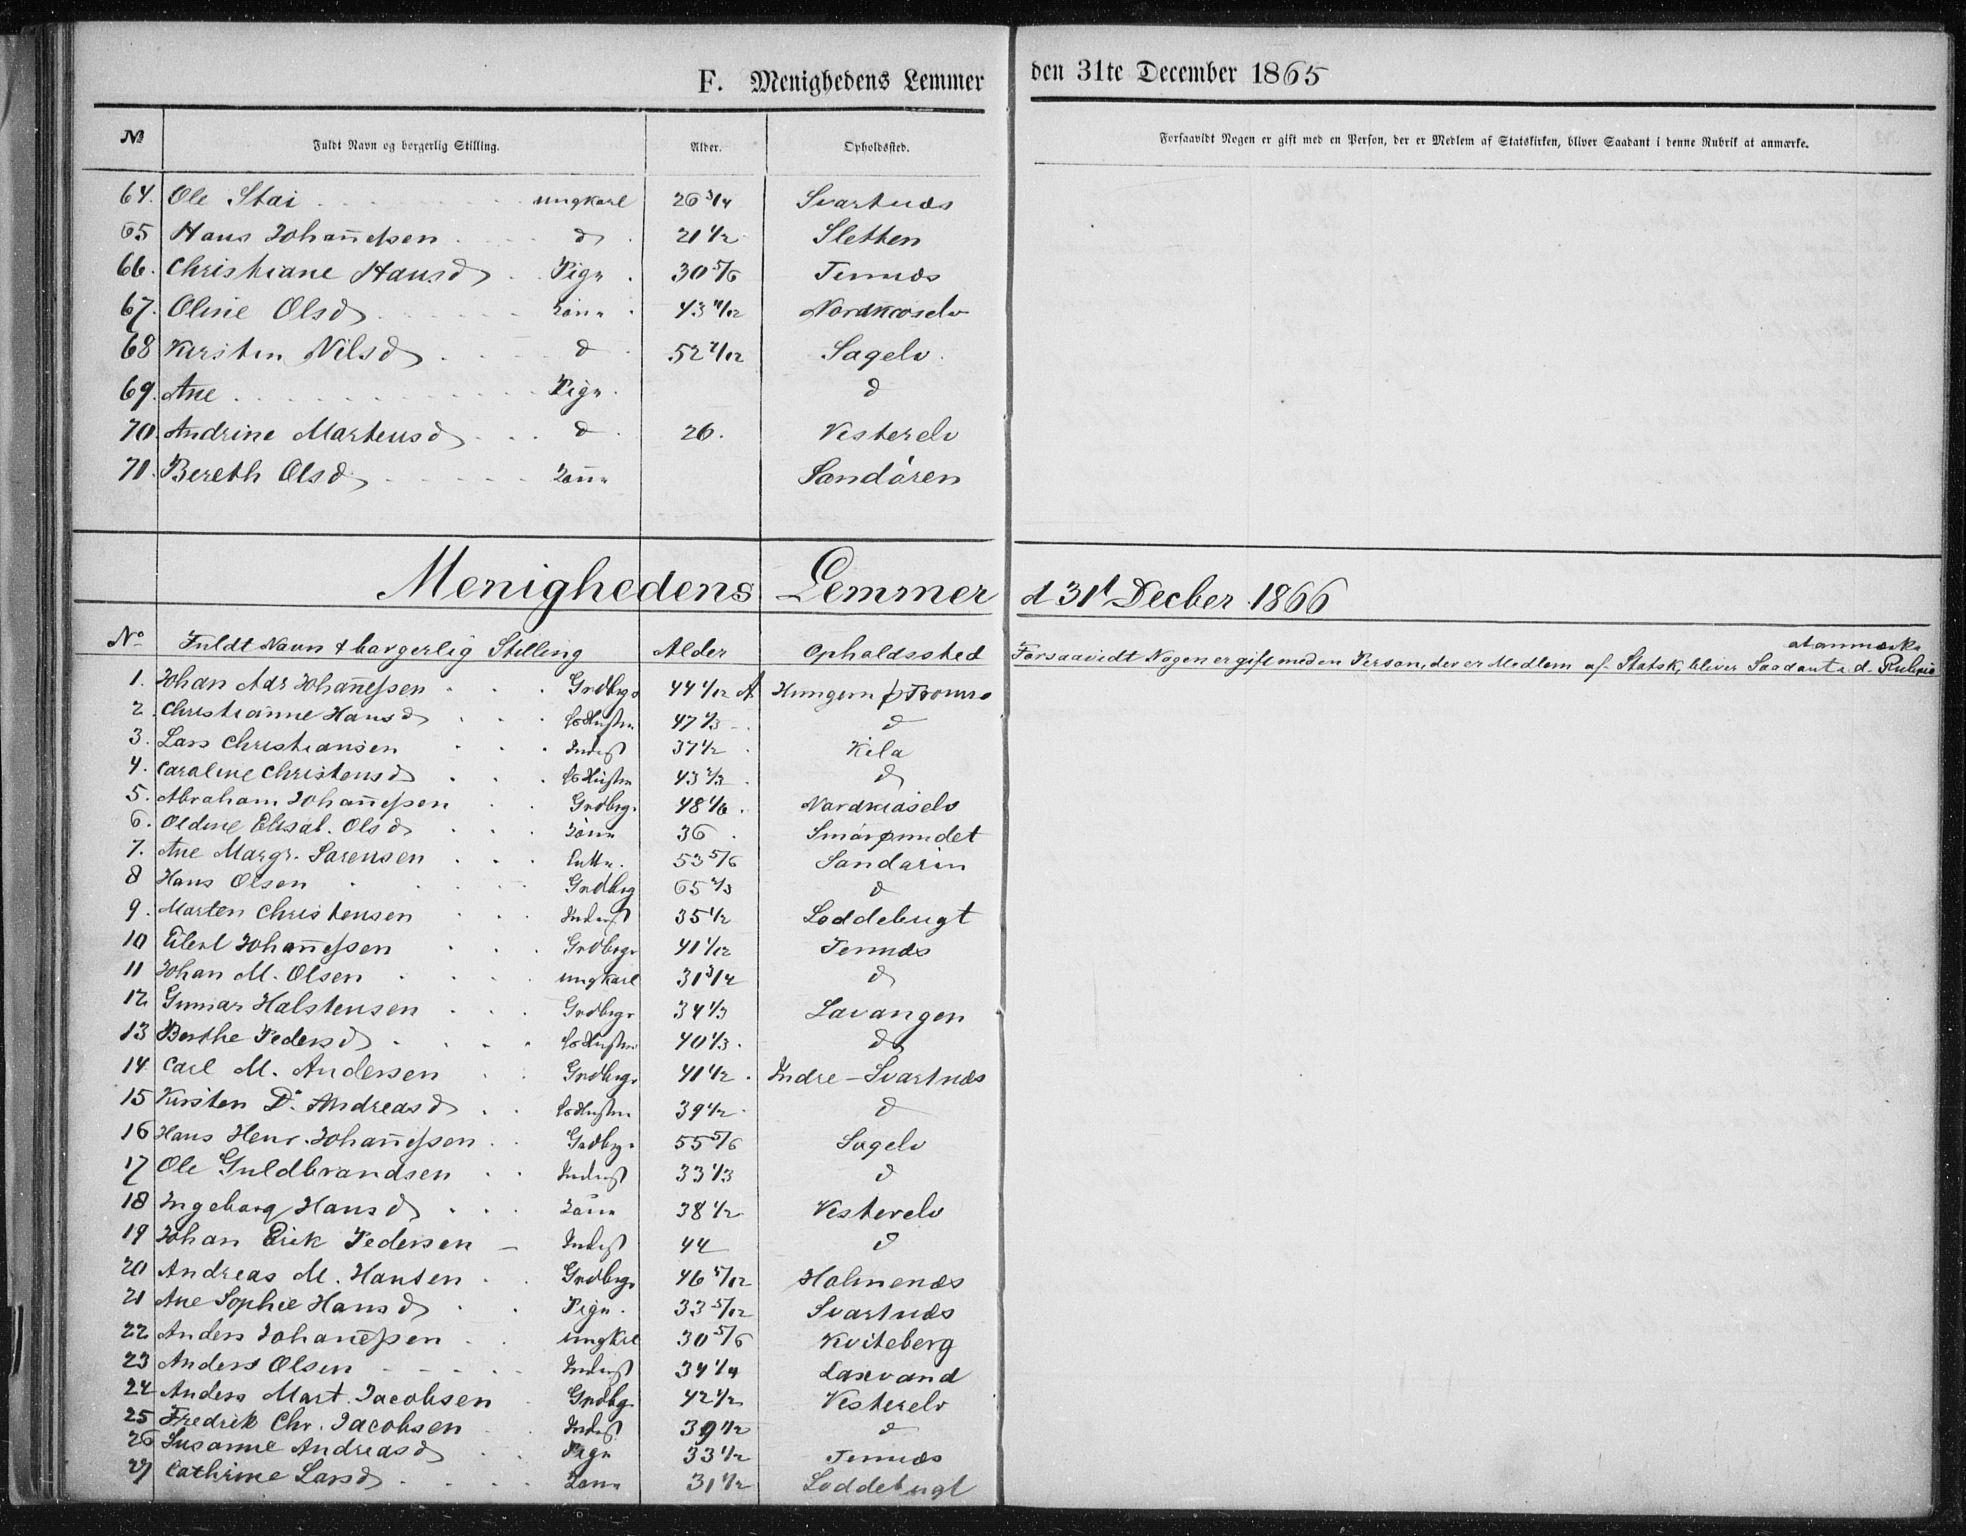 F. Menighedens Lemmer den 31te December 1865
№ Fuldt Navn og borgerlig Stilling. Alder. Opholdssted. Forsaavidt Nogen er gift med en Person, der er Medlem af Statskirken, bliver Saadant i denne Rubrik at anmærke.
64. Ole Stai ungkarl 26 3/4 Svartnæs
65 Hans Johan̄essen d 21 1/2 Sletten
66. Christiane Hansd Pige 30 5/6 Tennæs
67. Oline Olsd Kone 43 Nordkioselv
68 Kirsten Nilsd d 52 Sagelv
69. Ane Pige d
70. Andrine Martensd d 26. Vesterelv
71. Bereth Olsd Kon̄e Sandören
Menighedens Lemmer d 31t Decber 1866
No Fuldt Navn & borgerlig Stilling Alder Opholdssted Forsaavidt Nogen er gift med en Person, der er Medlem af Statsk, bliver Saadant i d. Rubrik at anmærke
1. Johan Adr Johan̄essen Grdbrgr 44 1/12 Hungern p Tromsö
2. Christianne Hansd s Hustru 47 1/3 d
3. Lars Christiansen Inderst 37 1/2 Kila
4. Caroline Christensd s Hustru 43 2/3 d
5. Abraham Johan̄essen Grdbrgr 48 1/6 Nordkiöselv
6. Oldine Elisab. Olsd Kone 36 Smörsundet
7. Ane Margr. Sörensen Enke 53 5/6 Sandören
8 Hans Olsen Grdbrg 65 2/3 d
9. Morten Christensen Inderst 35 1/2 Loddebugt
10 Eilert Johan̄essen Grdbrgr 41 1/12 Tennæs
11 Johan M. Olsen ungkarl 31 3/4 d
12 Gunnar Halstensen Grdbrgr 34 1/3 Lavangen
13 Berthe Pedersd s Hustru 40 1/3 d
14 Carl M. Andersen Grdbrgr 41 1/2 Indre-Svartnæs
15 Kirsten D. Andreasd s Hustru 39 1/2 d
16 Hans Henr. Johan̄essen Grdbrgr 55 5/6 Sagelv
17 Ole Guldbrandsen Inderst 33 1/3 d
18 Ingeborg Hansd Kone 38 1/2 Vesterelv
19 Johan Erik Pedersen Inderst 44 d
20 Andreas M. Hansen Grdbrgr 46 5/12 Holmenæs
21 Ane Sophie Hansd Pige 33 5/12 Svartnæs
22 Anders Johanessen ungkrl 30 5/6 Kviteberg
23 Anders Olsen Inderst 34 1/4 Laxvand
24 Anders Mart. Jacobsen Grdbgr 42 1/2 Vesterelv
25 Fredrik Chr. Jacobsen Inderst 39 1/2 d
26 Susanne Andreasd Pige 33 1/2 Tennæs
27 Cathrine Larsd Kone 31 1/2 Loddebugt